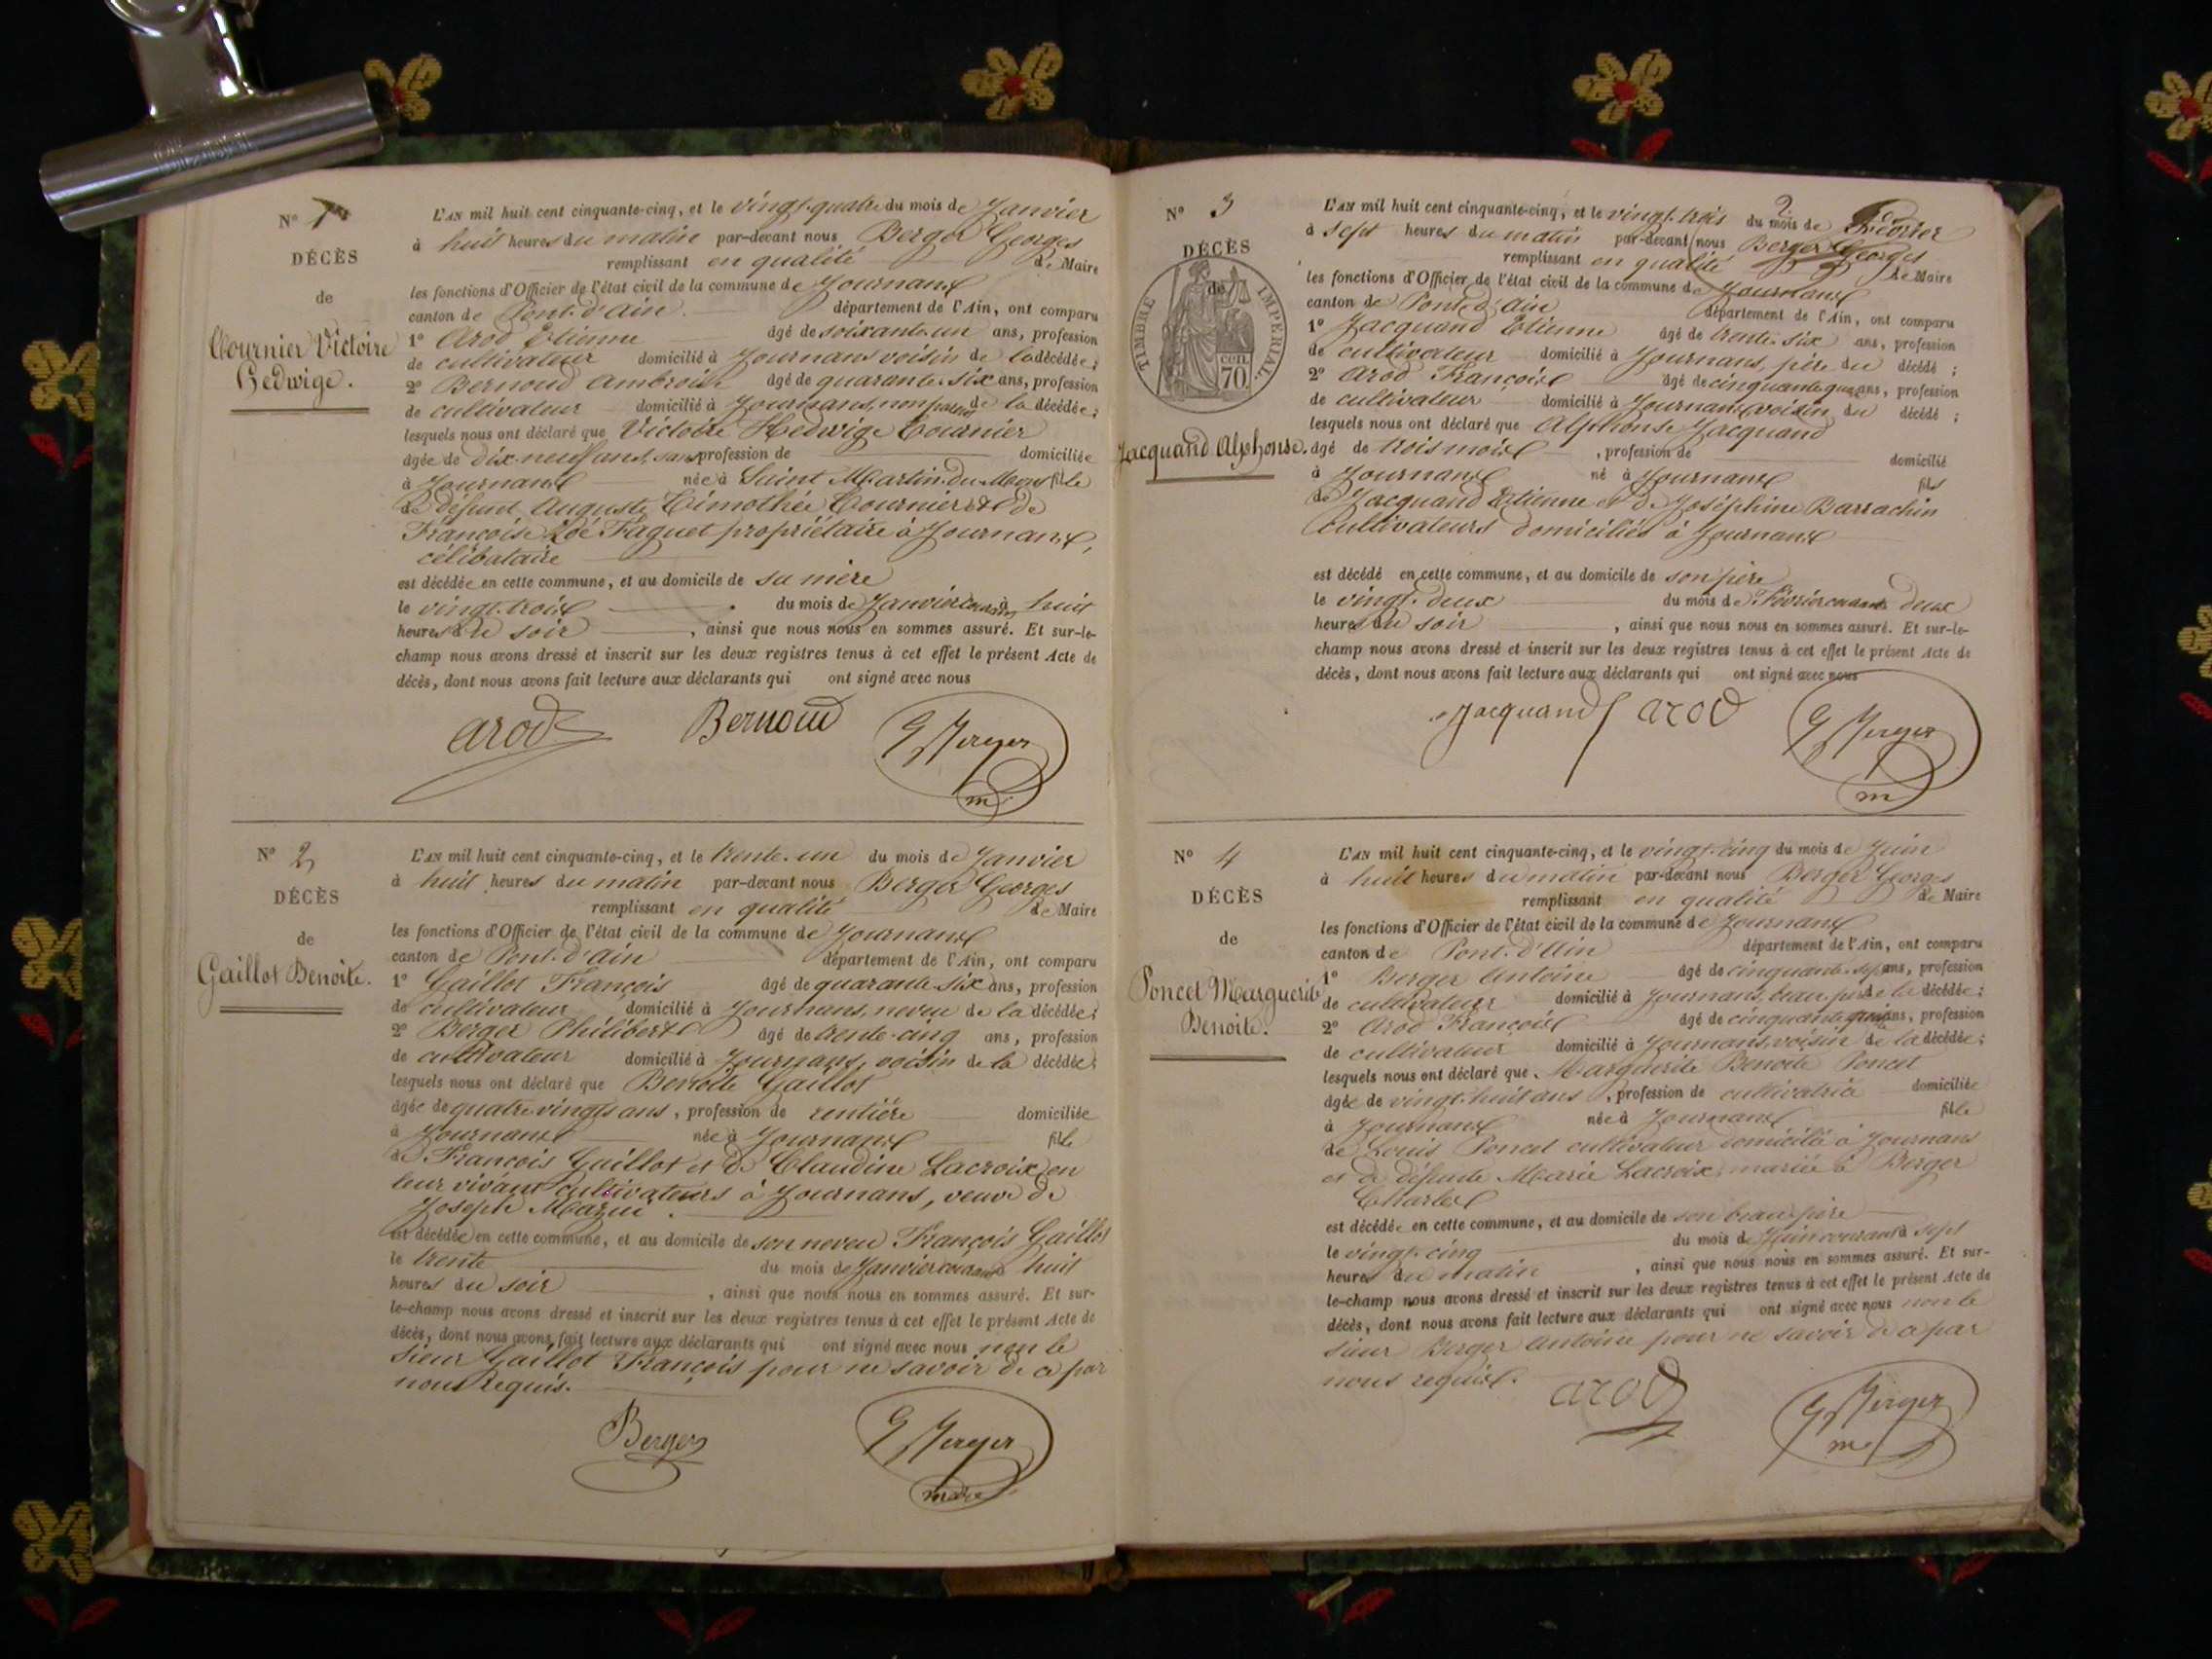 N° 1er
DÉCÈS
de
Cournier Victoire
Hedwige.
L'AN mil huit cent cinquante-cinq, et le vingt-quatre du mois de Janvier
à huit heures du matin par-devant nous Berger Georges
remplissant en qualité de Maire
les fonctions d'Officier de l'état civil de la commune de Journans
canton de Pont-d'Ain département de l'Ain, ont comparu
1° Arod Etienne âgé de soixante-un ans, profession
de cultivateur domicilié à Journans voisin de la décédée;
2° Bernoud Ambroise âgé de quarante-six ans, profession
de cultivateur domicilié à Journans, non parent de la décédée;
lesquels nous ont déclaré que Victoire Hedwige Cournier
âgée de dix-neuf ans, sans profession de domiciliée
à Journans née à Saint Martin-du-Mont fille
de défunt Auguste Timothée Cournier et de
Françoise Zoé Faguet propriétaire à Journans,
célibataire
est décédée en cette commune, et au domicile de sa mère
le vingt-trois du mois de Janvier courant à huit
heures du soir, ainsi que nous nous en sommes assuré. Et sur-le-
champ nous avons dressé et inscrit sur les deux registres tenus à cet effet le présent Acte de
décès, dont nous avons fait lecture aux déclarants qui ont signé avec nous
arod Bernoud G Berger
m
N° 2
DÉCÈS
de
Gaillot Benoite.
L'AN mil huit cent cinquante-cinq, et le trente-un du mois de Janvier
à huit heures du matin par-devant nous Berger Georges
remplissant en qualité de Maire
les fonctions d'Officier de l'état civil de la commune de Journans
canton de Pont-d'Ain département de l'Ain, ont comparu
1° Gaillot François âgé de quarante-six ans, profession
de cultivateur domicilié à Journans, neveu de la décédée;
2° Berger Philibert âgé de trente-cinq ans, profession
de cultivateur domicilié à Journans, voisin de la décédée;
lesquels nous ont déclaré que Benoite Gaillot
âgée de quatre vingts ans, profession de rentière domiciliée
à Journans née à Journans fille
de François Gaillot et de Claudine Lacroix en
leur vivant cultivateurs à Journans, veuve de
Joseph
est décédée en cette commune, et au domicile de son neveu François Gaillot
le trente du mois de Janvier courant à huit
heures du soir, ainsi que nous nous en sommes assuré. Et sur-
le-champ nous avons dressé et inscrit sur les deux registres tenus à cet effet le présent Acte de
décès, dont nous avons fait lecture aux déclarants qui ont signé avec nous non le
Sieur Gaillot François pour ne savoir de ce par
nous requis.
Berger G Berger
maire
2
N° 3
DÉCÈS
de
TIMBRE IMPERIAL
cen.
70.
Jacquand Alphonse.
L'AN mil huit cent cinquante-cinq, et le vingt-trois du mois de Février
à sept heures du matin par-devant nous Berger Georges
remplissant en qualité de Maire
les fonctions d'Officier de l'état civil de la commune de Journans
canton de Pont-d'Ain département de l'Ain, ont comparu
1° Jacquand Etienne âgé de trente-six ans, profession
de cultivateur domicilié à Journans, père du décédé;
2° Arod François âgé de cinquante-quatre ans, profession
de cultivateur domicilié à Journans voisin du décédé;
lesquels nous ont déclaré que Alphonse Jacquand
âgé de trois mois, profession de domicilié
à Journans né à Journans fils
de Jacquand Etienne et de Joséphine Barrachin
cultivateurs domiciliés à Journans
est décédé en cette commune, et au domicile de son père
le vingt-deux du mois de Février courant à deux
heures du soir, ainsi que nous nous en sommes assuré. Et sur-le-
champ nous avons dressé et inscrit sur les deux registres tenus à cet effet le présent Acte de
décès, dont nous avons fait lecture aux déclarants qui ont signé avec nous
Jacquand arod G Berger
m
N° 4
DÉCÈS
de
Poncet Marguerite
Benoite.
L'AN mil huit cent cinquante-cinq, et le vingt-cinq du mois de Juin
à huit heures du matin par-devant nous Berger Georges
remplissant en qualité de Maire
les fonctions d'Officier de l'état civil de la commune de Journans
canton de Pont-d'Ain département de l'Ain, ont comparu
1° Berger Antoine âgé de cinquante-sept ans, profession
de cultivateur domicilié à Journans, beau père de la décédée;
2° Arod François âgé de cinquante quatre ans, profession
de cultivateur domicilié à Journans voisin de la décédée;
lesquels nous ont déclaré que Marguerite Benoite Poncet
âgée de vingt-huit ans, profession de cultivatrice domiciliée
à Journans née à Journans fille
de Louis Poncet cultivateur domicilié à Journans
et de défunte Marie Lacroix, mariée à Berger
Charles
est décédée en cette commune, et au domicile de son beau père
le vingt-cinq du mois de Juin courant à sept
heures du matin, ainsi que nous nous en sommes assuré. Et sur-
le-champ nous avons dressé et inscrit sur les deux registres tenus à cet effet le présent Acte de
décès, dont nous avons fait lecture aux déclarants qui ont signé avec nous non le
sieur Berger Antoine pour ne savoir de ce par
nous requis.
arod G Berger
m